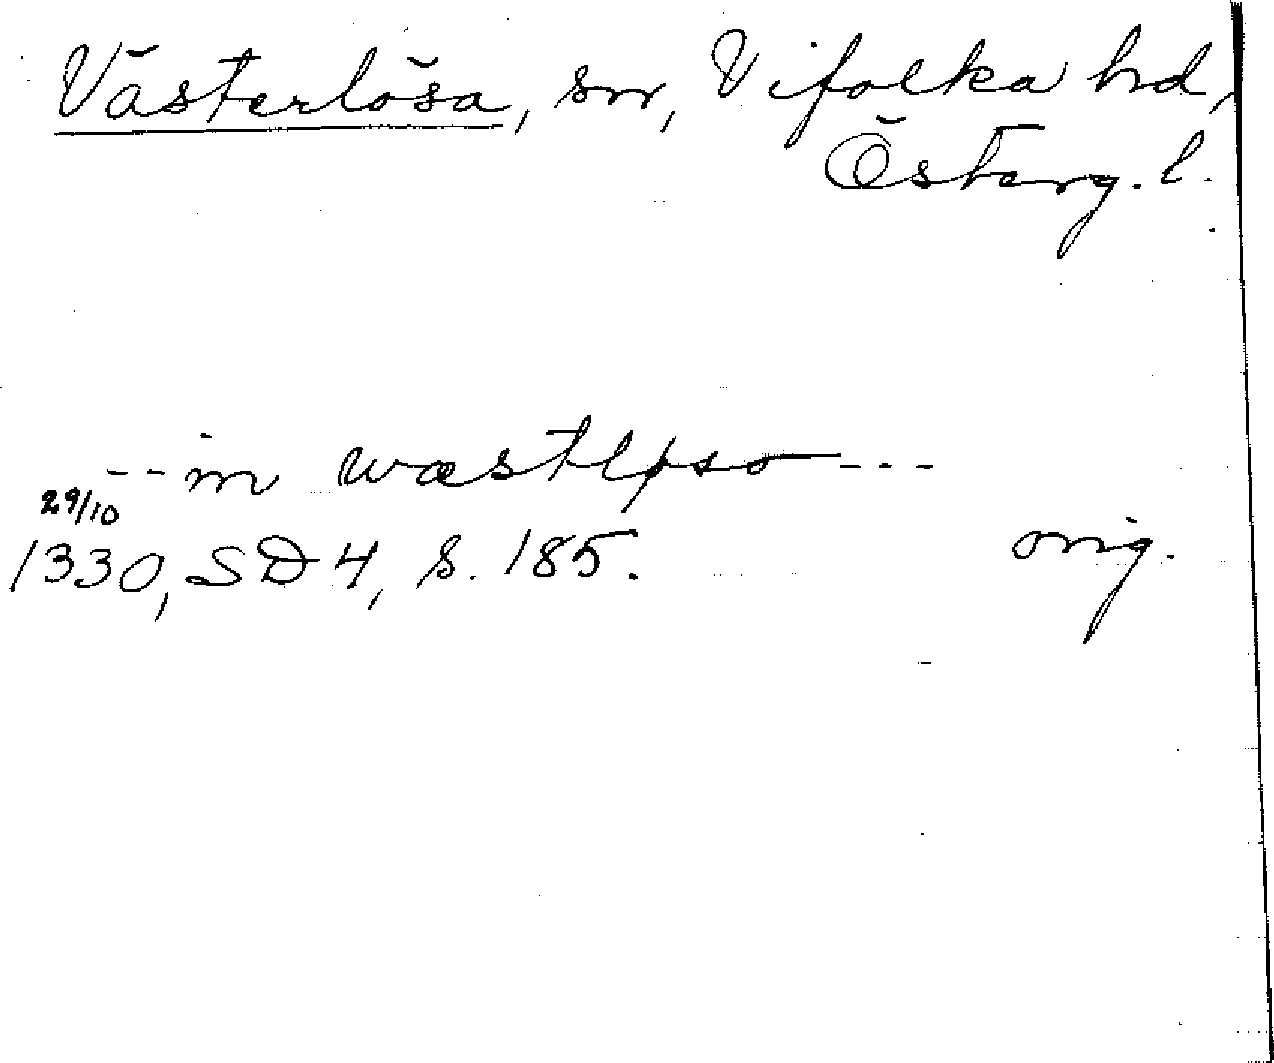 Västerlösa, sn, Vifolka hd,
Österg. l.
-- in wæstløso ---
29/10
1330, SD 4, s. 185. orig.